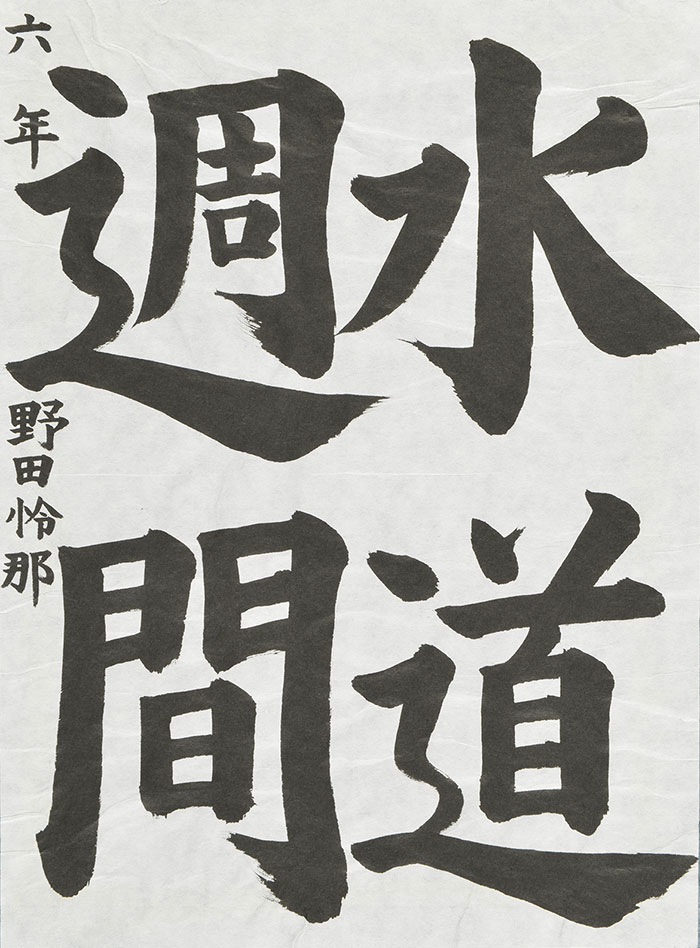 水道
週間
六年
野田怜那